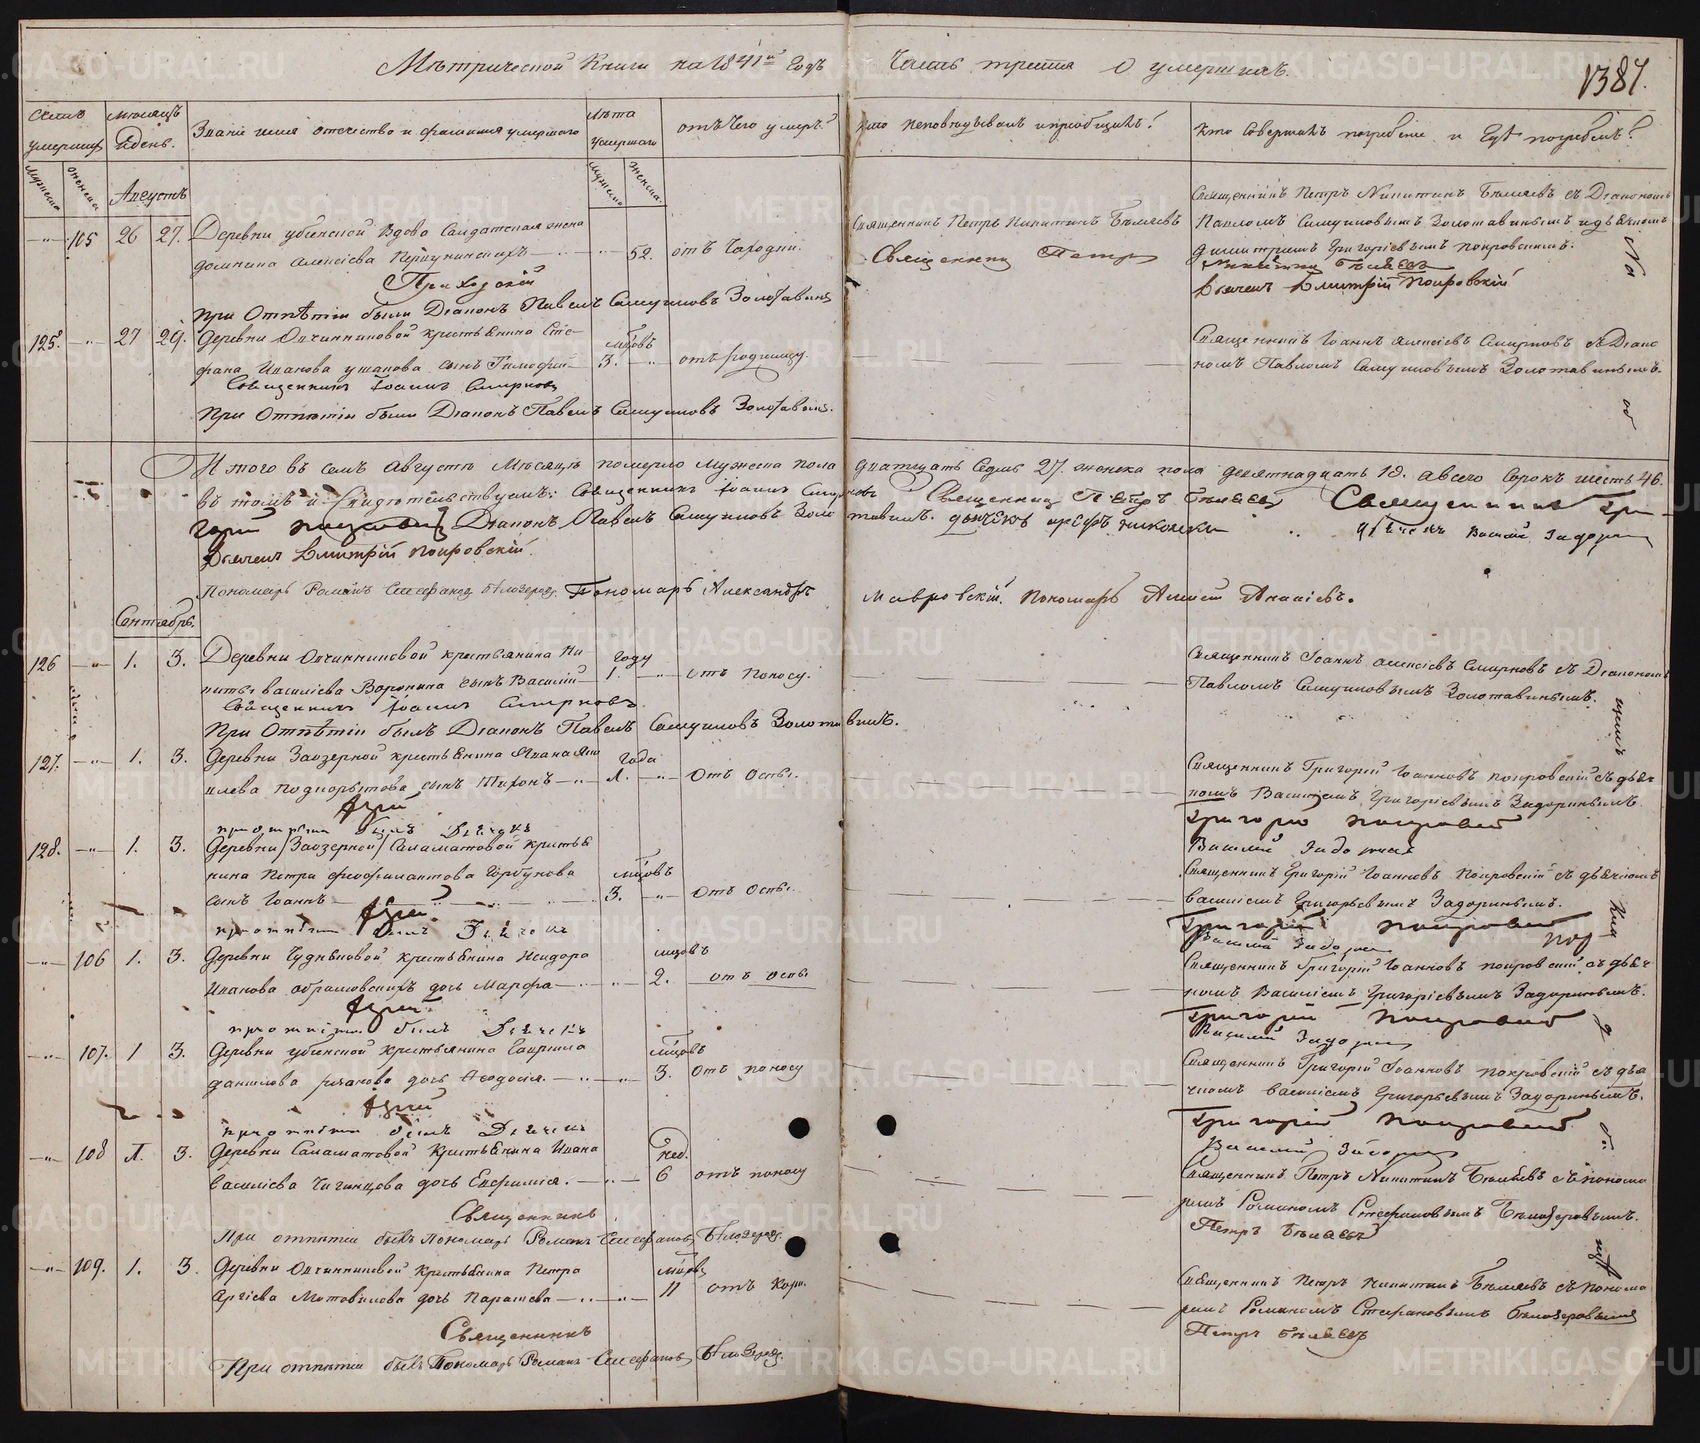 Метрической Книги на 1841й Годъ Часть третія О умершихъ.
1387.
Счетъ умершихъ
Мѣсяцъ и день.
Званіе имя отечество и фамилія умершаго
Лѣта умершаго
отъ чего умеръ?
Кто исповѣдывалъ и пріобщалъ?
Кто совершалъ погребеніе и гдѣ погребенъ?
Мужеска Женска
Мужеска Женска
Августъ
105 26 27. Деревни убіенской вдова Салдатская жена
Домникія Алексіева 52. отъ чаходки.
Священникъ Петръ Никитинъ Бѣляевъ
Священникъ Петръ
Священникъ Петръ Никитинъ Бѣляевъ съ Діакономъ
Павломъ Самуиловымъ Золотавинымъ и дьячкомъ
Димитріемъ Григоріевымъ Покровскимъ.
Никитинъ Бѣляевъ
Дьячекъ Дмитрій Покровскій
При Отпѣтіи были Діаконъ Павелъ Самуиловъ Золотавинъ
125. 27 29. Деревни Овчинниковой крестьянина Сте-
фана Иванова ушакова сынъ Тимофей мцовъ 3. отъ родимцу.
Священникъ Іоаннъ Смирновъ
При Отпѣтіи были Діаконъ Павелъ Самуиловъ Золотавинъ.
Священникъ Іоаннъ Алексіевъ Смирновъ съ Діако
номъ Павломъ Самуиловымъ Золотавинымъ.
Итого въ семъ Августѣ Мѣсяцѣ померло Мужеска пола дватцать Седмь 27. женска пола девятнадцать 19. а всего Сорокъ шесть 46.
въ томъ и Свидѣтельствуемъ: Священникъ Іоаннъ Смирновъ Священникъ Петръ Бѣляевъ Священникъ Гри-
горій Покровскій Діаконъ Павелъ Самуиловъ Золотавинъ. дьячекъ Василій Задорин
Дьячекъ Дмитрій Покровскій.
Пономарь Романъ Стефановъ Бѣлозеровъ. Пономарь Александръ Мавровскій. Пономарь Алексій
Сентябрь.
126 1. 3. Деревни Овчинниковой крестьянина Ни-
киты василіева Воронина сынъ Василій году 1. отъ поносу.
Священникъ Іоаннъ Смирновъ
При Отпѣтіи былъ Діаконъ Павелъ Самуиловъ Золотавинъ.
Священникъ Іоаннъ Алексіевъ Смирновъ съ Діакономъ
Павломъ Самуиловымъ Золотавинымъ.
127. 1. 3. Деревни Заозерной крестьянина Ивана Яко
влева Подкорытова сынъ Тихонъ года 1. Отъ Оспы.
при отпѣтіи былъ Дьячекъ
Священникъ Григорій Іоанновъ Покровскій съ дьяч-
комъ Василіемъ Григоріевымъ Задоринымъ.
Григорій Покровскій
Василій Задорин
128. 1. 3. Деревни /Заозерной/ Саламатовой крестья
нина Петра феофилактова Горбунова
сынъ Іоаннъ мцовъ 3. Отъ Оспы.
при отпѣтіи былъ Дьячекъ
Священникъ Григорій Іоанновъ Покровскій съ дьячкомъ
василіемъ Григорьевымъ Задоринымъ.
Григорій Покровскій
Василій Задорин
106 1. 3. Деревни Чудиновой крестьянина Исидора
Иванова абрамовскихъ дочь Марфа мцовъ 2. отъ оспы
при отпѣтіи былъ Дьячекъ
Священникъ Григорій Іоанновъ покровскій съ дьяч
комъ Василіемъ Григоріевымъ Задоринымъ.
Григорій Покровскій
Василій Задорин
107. 1 3. Деревни убіенской крестьянина Гавриила
данилова дочь Ѳеодосія. мцовъ 3. отъ поносу
при отпѣтіи былъ Дьячекъ
Священникъ Григорій Іоанновъ покровскій съ дья
чкомъ василіемъ Григорьевымъ Задоринымъ.
Григорій Покровскій
Василій Задорин
108 1. 3. Деревни Саламатовой крестьянина Ивана
Василіева Чигинцова дочь Евфимія. нед. 6 отъ поносу
Священникъ
При отпѣтіи былъ Пономарь Романъ Стефановъ Бѣлозеровъ.
Священникъ Петръ Никитинъ Бѣляевъ съ понома
ремъ Романомъ Стефановымъ Бѣлозеровымъ.
Петръ Бѣляевъ
109. 1. 3. Деревни Овчинниковой крестьянина Петра
Мотовилова дочь Параскева мцовъ 11 отъ кори.
Священникъ
При отпѣтіи былъ Пономарь Романъ Стефановъ Бѣлозеровъ.
Священникъ Петръ Никитинъ Бѣляевъ съ понома
ремъ Романомъ Стефановымъ Бѣлозеровымъ
Петръ Бѣляевъ
METRIKI.GASO-URAL.RU